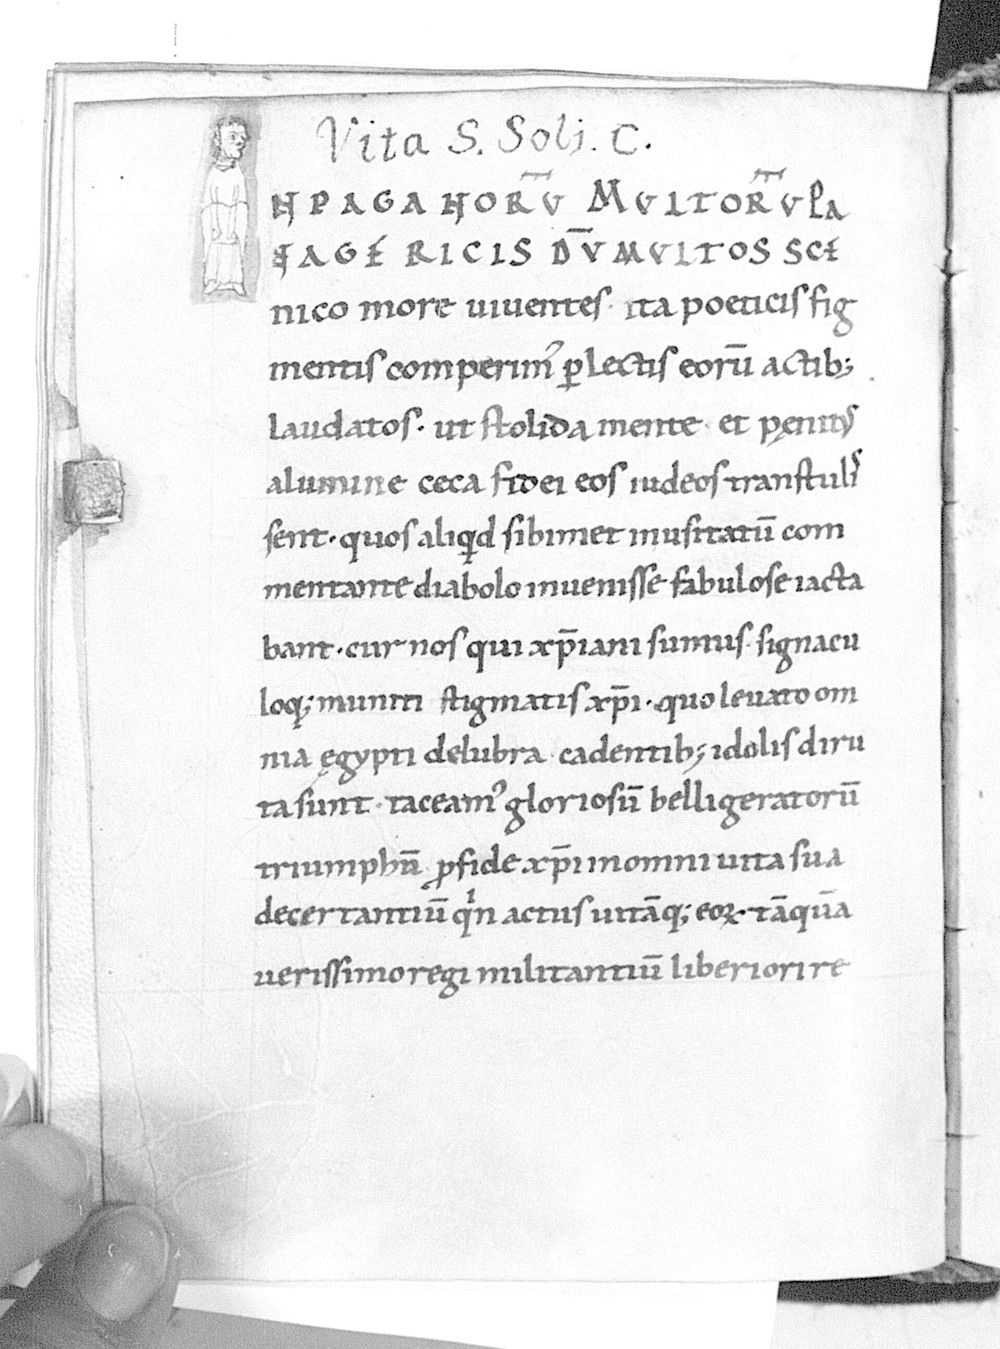 Vita S. Soli. C.
IN PAGANORŪ MULTORŪ PA
NAGERICIS DŪ MULTOS SCE
nico more uiuentes · ita poeticis fig
mentis comperim᾽ ꝑlectis eorū actib;
laudatos · ut stolida mente · et pęnit᾽
a lumine ceca fidei eos iudeos transtulis
sent · quos aliqͥd sibimet inusitatū com
mentante diabolo inuenisse fabulose iacta
bant · cur nos qui xp̄iani sumus · signacu
loq; muniti stigmatis xp̄i · quo leuato om
nia ęgypti delubra · cadentib; idolis diru
ta sunt · taceam᾽ gloriosū belligeratorū
triumphū ꝓ fide xp̄i in omni uita sua
decertantiū qͥn actus uitāq; eoꝝ · tāquā
uerissimo regi militantiū liberiori re